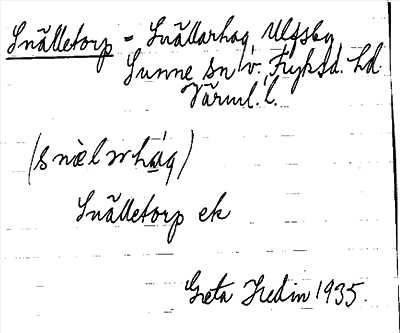 Snälletorp = Snällarhag Ulfsby
Sunne sn v. Fryksd. hd
Värml. l.
(snæ̀lɘrhág)
Snälletorp ek
Greta Hedin 1935.